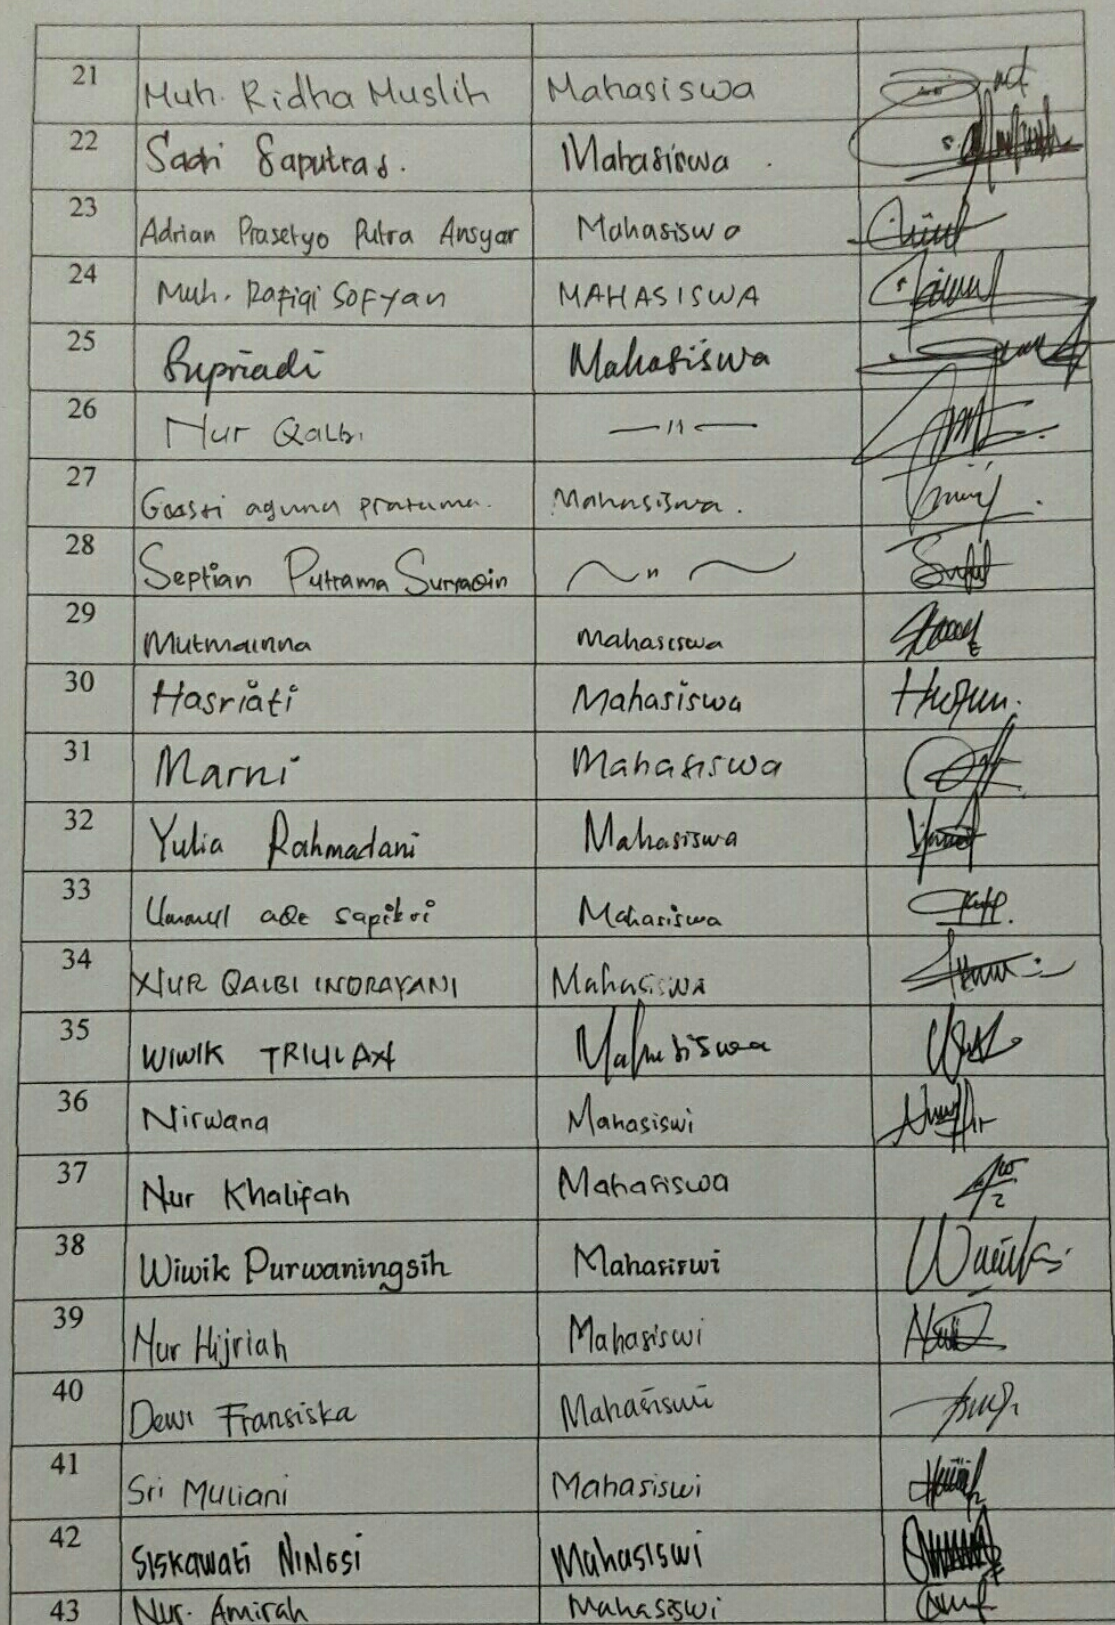 21 Muh. Ridha Muslih Mahasiswa
22 Sadri Saputra S. Mahasiswa
23 Adrian Prasetyo Putra Ansyar Mahasiswa
24 Muh. Rafiqi SOFYan MAHASISWA
25 Supriadi Mahasiswa
26 Nur Qalbi — 11 —
27 aguna pratama. Mahasiswa.
28 Septian Putrama Mahasiswa
29 Mutmainna Mahasiswa
30 Hasriati Mahasiswa
31 Marni Mahasiswa
32 Yulia Rahmadani Mahasiswa
33 Ummul ade sapitri Mahasiswa
34 NUR QALBI INDRAYANI Mahasiswa
35 WIWIK Mahasiswa
36 Nirwana Mahasiswi
37 Nur Khalifah Mahasiswa
38 Wiwik Purwaningsih Mahasiswi
39 Nur Hijriah Mahasiswi
40 Dewi Fransiska Mahasiswi
41 Sri Muliani Mahasiswi
42 SISKAWATi NINGSI Mahasiswi
43 Nur. Amirah Mahasiswi